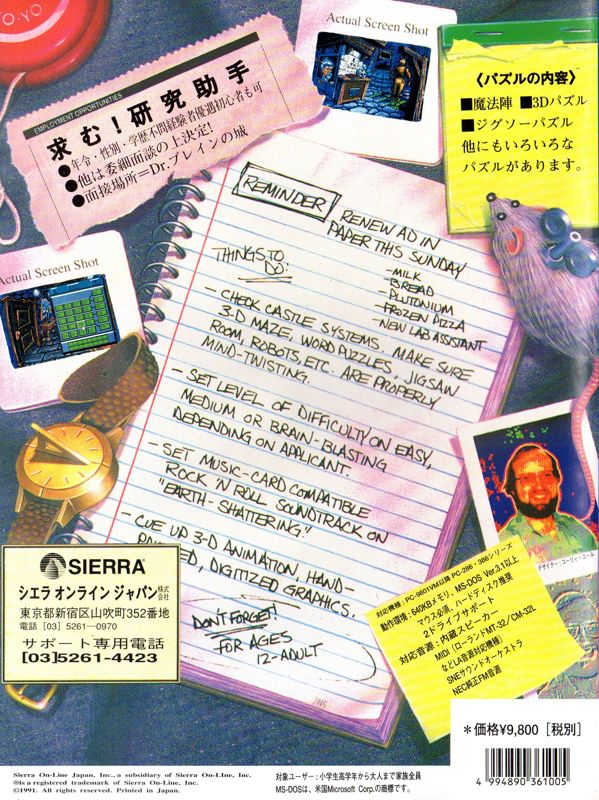 YO-YO
EMPLOYMENT OPPORTUNITIES
求む！研究助手
●年令・性別・学歴不問経験者優遇初心者も可
●他は委細面談の上決定！
●面接場所＝Dr.ブレインの城
Actual Screen Shot
〈パズルの内容〉
■魔法陣 ■3Dパズル
■ジグソーパズル
他にもいろいろな
パズルがあります。
Actual Screen Shot
REMINDER
RENEW AD IN
PAPER THIS SUNDAY
THINGS TO
DO:
-MILK
-BREAD
-PLUTONIUM
-FROZEN PIZZA
-NEW LAB ASSISTANT
- CHECK CASTLE SYSTEMS. MAKE SURE
3-D MAZE, WORD PUZZLES, JIGSAW
ROOM, ROBOTS, ETC. ARE PROPERLY
MIND-TWISTING.
- SET LEVEL OF DIFFICULTY ON EASY,
MEDIUM OR BRAIN-BLASTING
DEPENDING ON APPLICANT.
- SET MUSIC-CARD COMPATIBLE
ROCK 'N ROLL SOUNDTRACK ON
"EARTH-SHATTERING."
- CUE UP 3-D ANIMATION, HAND-
PAINTED, DIGITIZED GRAPHICS.
DON'T FORGET!
FOR AGES
12-ADULT
デザイナー・コーリィ・コール
SIERRA
シエラ オンライン ジャパン株式会社
東京都新宿区山吹町352番地
電話［03］5261―0970
サポート専用電話
[03]5261-4423
対応機種：PC-9801VM以降 PC-286・386シリーズ
動作環境：640KBメモリ、MS-DOS Ver.3.1以上
マウス必須、ハードディスク推奨
2ドライブサポート
対応音源：内蔵スピーカー
MIDI（ローランドMT-32/CM-32L
などLA音源対応機種）
SNEサウンドオーケストラ
NEC純正FM音源
＊価格¥9,800［税別］
4 994890 361005
Sierra On-Line Japan, Inc., a subsidiary of Sierra On-Line, Inc.
®is a registered trademark of Sierra On-Line, Inc.
©1991. All rights reserved. Printed in Japan.
対象ユーザー：小学生高学年から大人まで家族全員
MS-DOSは、米国Microsoft Corp.の商標です。